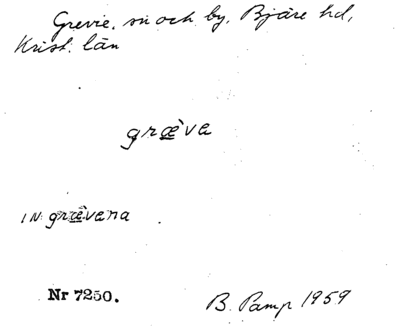 Grevie. sn och by, Bjäre hd,
Krist. län
græ̀va
IN grævena
Nr 7250.
B. Pamp 1959